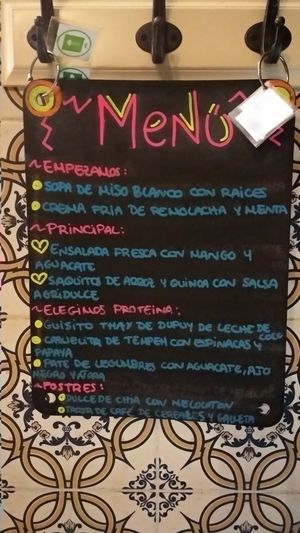 MENÚ
~EMPEZAMOS:
SOPA DE MISO BLANCO CON RAICES
CREMA FRIA DE REMOLACHA Y MENTA
~PRINCIPAL:
ENSALADA FRESCA CON MANGO Y
AGUACATE
SAQUITOS DE ARROZ Y QUINOA CON SALSA
AGRIDULCE
~ELEGIMOS PROTEINA:
GUISITO THAY DE DUPUY DE LECHE DE COCO
CAZUELITA DE TEMPEH CON ESPINACAS Y
PAPAYA
PATE DE LEGUMBRES CON AGUACATE, AJO
NEGRO Y
~POSTRES:
DULCE DE CHIA CON MELOCOTON
TARTA DE CAFÉ DE CEREALES Y GALLETA